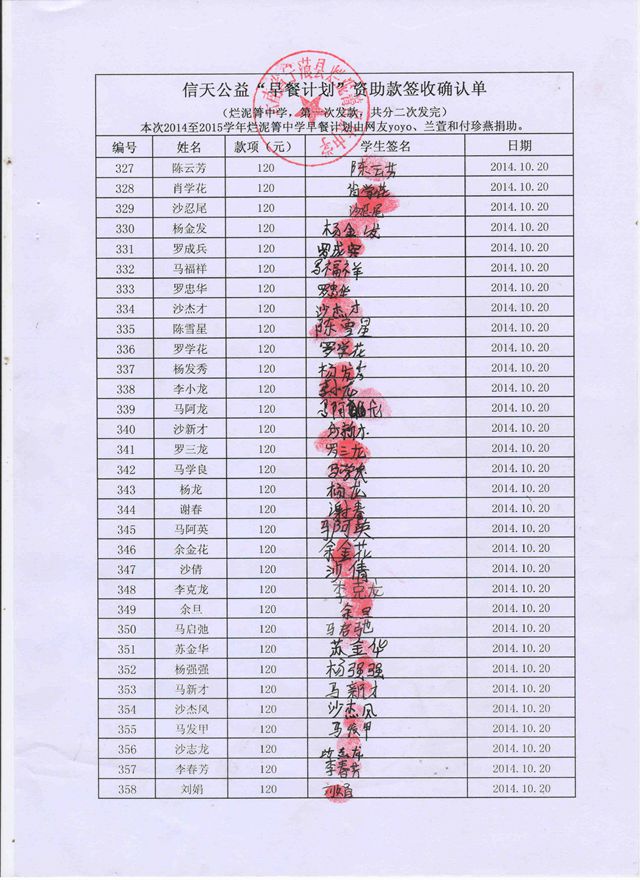 信天公益“早餐计划”资助款签收确认单
（烂泥箐中学，第一次发款，共分二次发完）
本次2014至2015学年烂泥箐中学早餐计划由网友yoyo、兰萱和付珍燕捐助。
编号 姓名 款项（元） 学生签名 日期
327 陈云芳 120 陈云芳 2014.10.20
328 肖学花 120 肖学花 2014.10.20
329 沙忍尾 120 沙忍尾 2014.10.20
330 杨金发 120 杨金发 2014.10.20
331 罗成兵 120 罗成兵 2014.10.20
332 马福祥 120 马福祥 2014.10.20
333 罗忠华 120 罗忠华 2014.10.20
334 沙杰才 120 沙杰才 2014.10.20
335 陈雪星 120 陈雪星 2014.10.20
336 罗学花 120 罗学花 2014.10.20
337 杨发秀 120 杨发秀 2014.10.20
338 李小龙 120 李小龙 2014.10.20
339 马阿龙 120 马阿龙 2014.10.20
340 沙新才 120 沙新才 2014.10.20
341 罗三龙 120 罗三龙 2014.10.20
342 马学良 120 马学良 2014.10.20
343 杨龙 120 杨龙 2014.10.20
344 谢春 120 谢春 2014.10.20
345 马阿英 120 马阿英 2014.10.20
346 余金花 120 余金花 2014.10.20
347 沙倩 120 沙倩 2014.10.20
348 李克龙 120 李克龙 2014.10.20
349 余旦 120 余旦 2014.10.20
350 马启弛 120 马启驰 2014.10.20
351 苏金华 120 苏金华 2014.10.20
352 杨强强 120 杨强强 2014.10.20
353 马新才 120 马新才 2014.10.20
354 沙杰风 120 沙杰风 2014.10.20
355 马发甲 120 马发甲 2014.10.20
356 沙志龙 120 沙志龙 2014.10.20
357 李春芳 120 李春芳 2014.10.20
358 刘娟 120 刘娟 2014.10.20